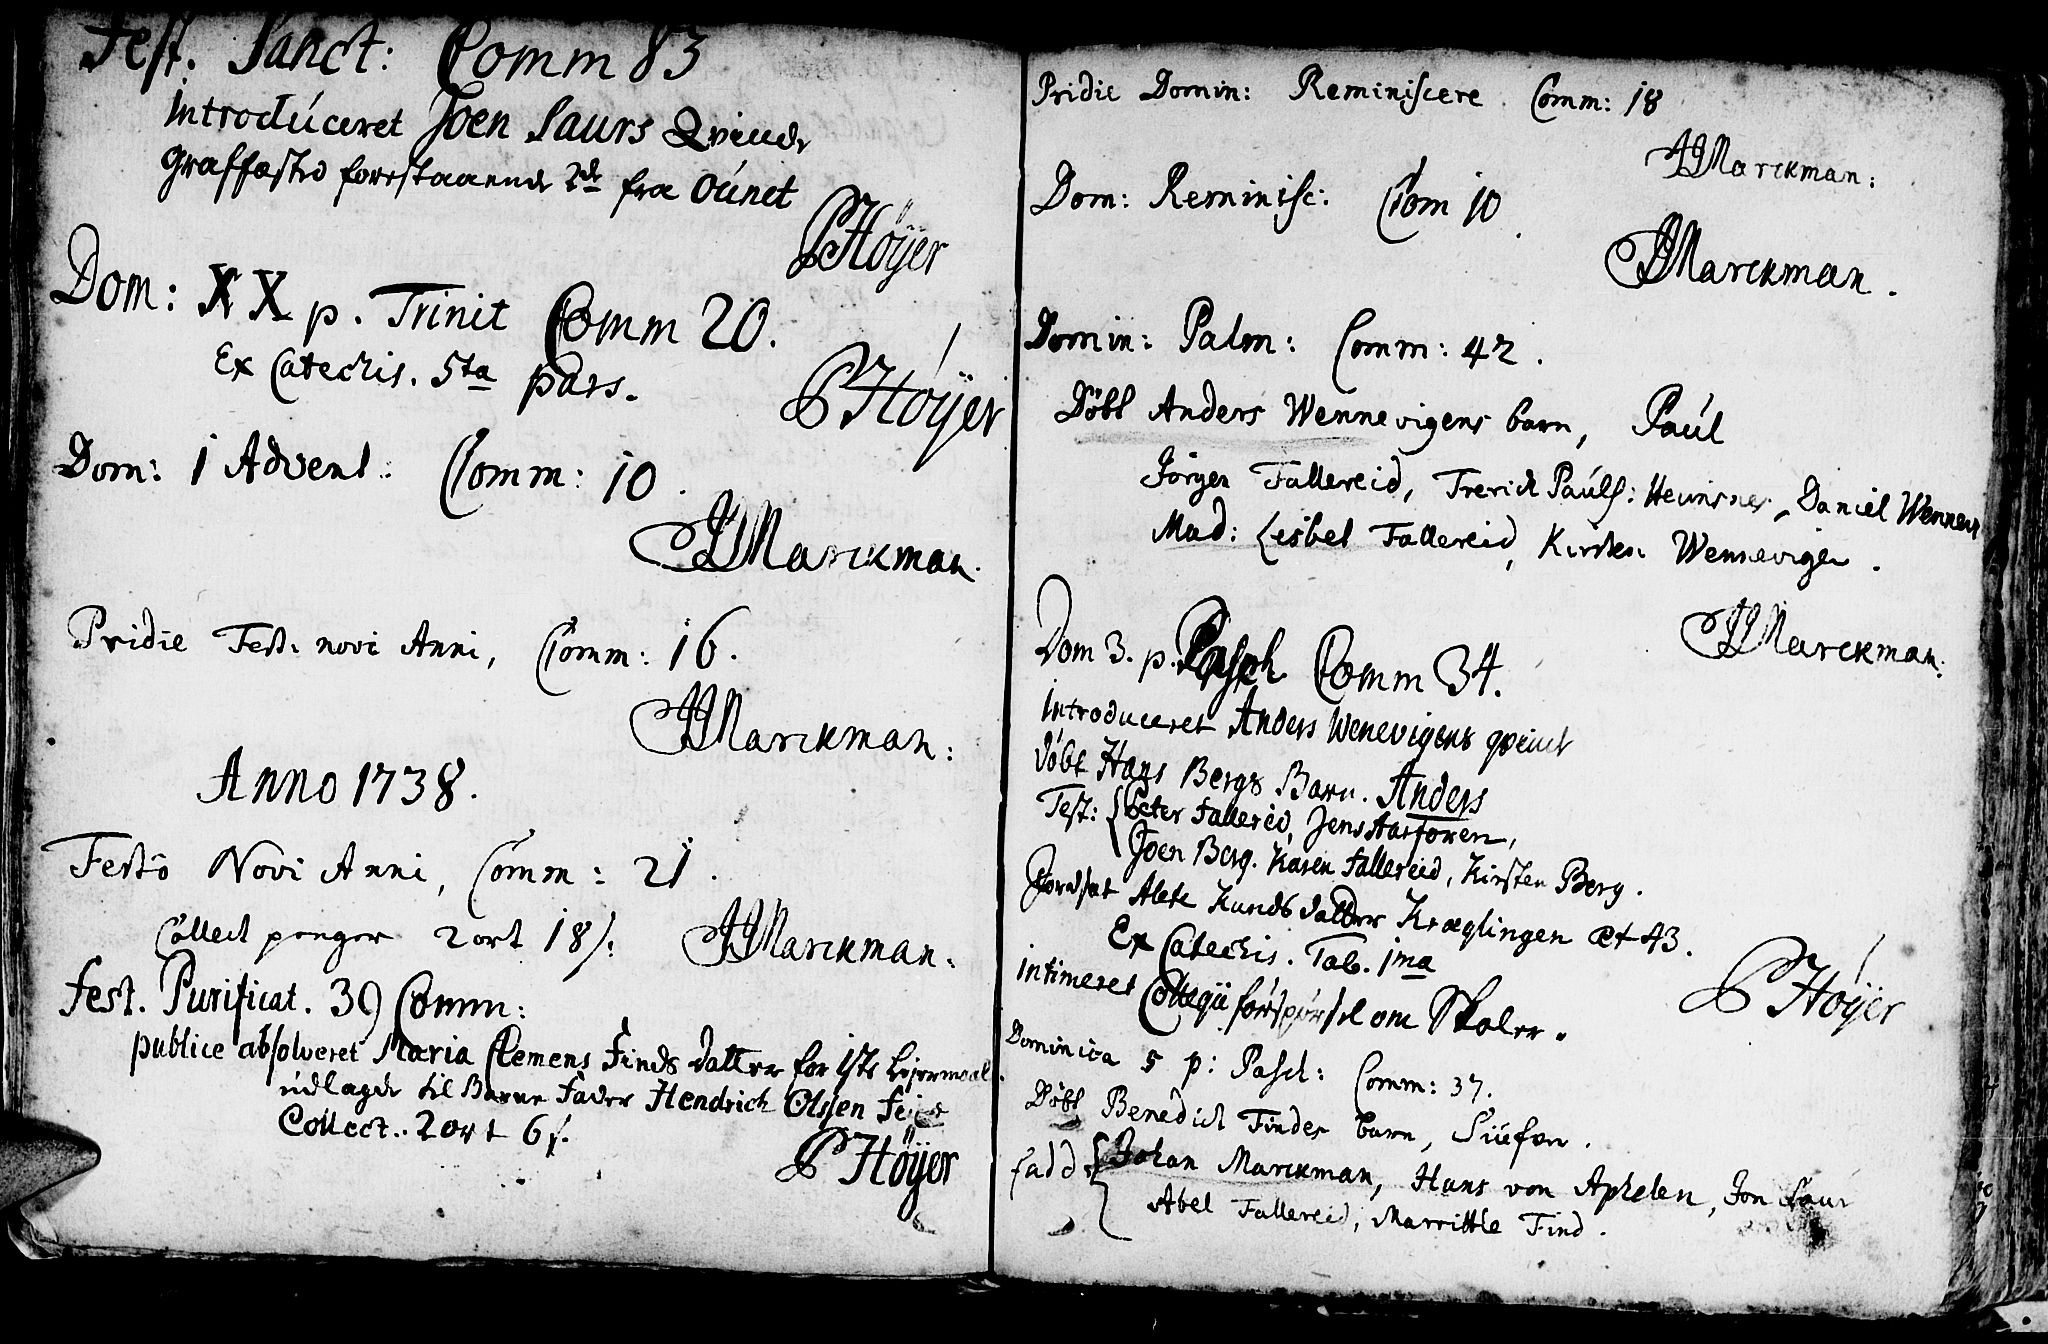 Fest. Sanct: Comm 83
Introdúceret Joen Saurs Qvinde
Graffæsted forestaaende 2de fra Oúnet
P Høÿer
Dom: XX p. Trinit Comm 20.
Ex Catechis. 5ta pars.
P Høÿer
Dom: 1 Advent: Comm: 10.
JJMarckman.
Pridie Fest. novi Anni, Comm: 16.
JJMarckman:
Anno 1738.
Festo Novi Anni, Comm: 21.
Collect penger 2 ort 18 s:
JJMarckman.
Fest. Purificat. 39 Comm:
publice absolveret Maria Clemens Finds datter for 1ste Lejermaal
udlagde til Barne Fader Hendrich Olssen
Collect.. 2 ort 6 s.
P Høÿer
Pridie Domin: Reminiscere. Comm: 18
JJMarckman:
Dom: Reminisc: Com 10.
JJMarckman.
Domin: Palm: Comm: 42.
Döbt Anders Wennevigens barn, Paúl
Jörgen Fallereid, Paúls: , Daniel Wennev
Mad: Lisbet Fallereid, Kirsten Wennevigen.
JJMarckman:
Dom 3. p. Pasch Comm 34.
Introduceret Anders Wenevigens qvinde
döbt Hans Bergs Barn. Anders
Test: { Peter Fallereid, Jens Aasforen,
Joen Berg. Karen Fallereid, Kirsten Berg.
Jordsat Alete Knuds datter Kræglingen æt 43.
Ex Catechis. Tab. 1ma
intimeret Collegii forspørsel om Skoler.
P Høÿer
Dominica 5 p: Pasch: Comm: 37.
Döbt Benedich Findes barn,
fadd { Johan Marckman, Hans von Aphelen, Jon Saur
Abel Fallereid, Marritte Find.